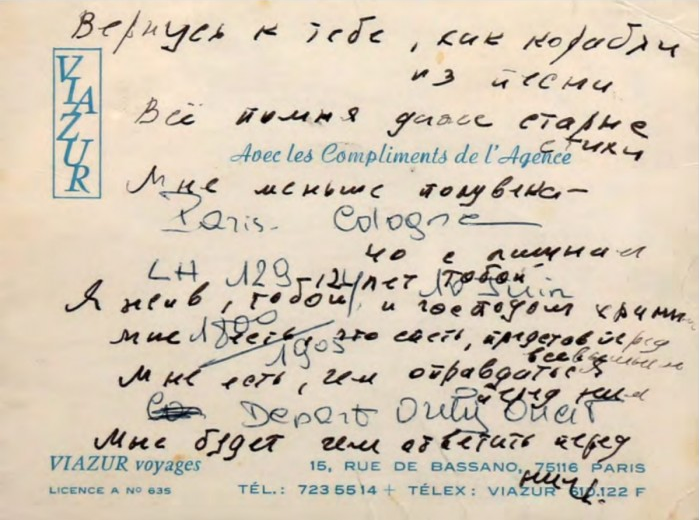 Вернусь к тебе, как корабли
из песни
Всё помня даже старые
стихи
VIAZUR
Avec les Compliments de l'Agence
Мне меньше полувека –
Paris. Cologne
но с лишним
LH 129 12 лет тобой
10 Juin
Я жив, тобой и господом храним
1800
мне есть, что спеть, представ перед
всевышним
1905
Мне есть, чем оправдаться
перед ним
Depart Orly Ouest
Мне будет чем ответить перед
ним.
VIAZUR voyages
15, RUE DE BASSANO, 75116 PARIS
LICENCE A N° 635
TÉL.: 723 55 14 + TÉLEX: VIAZUR 610.122 F